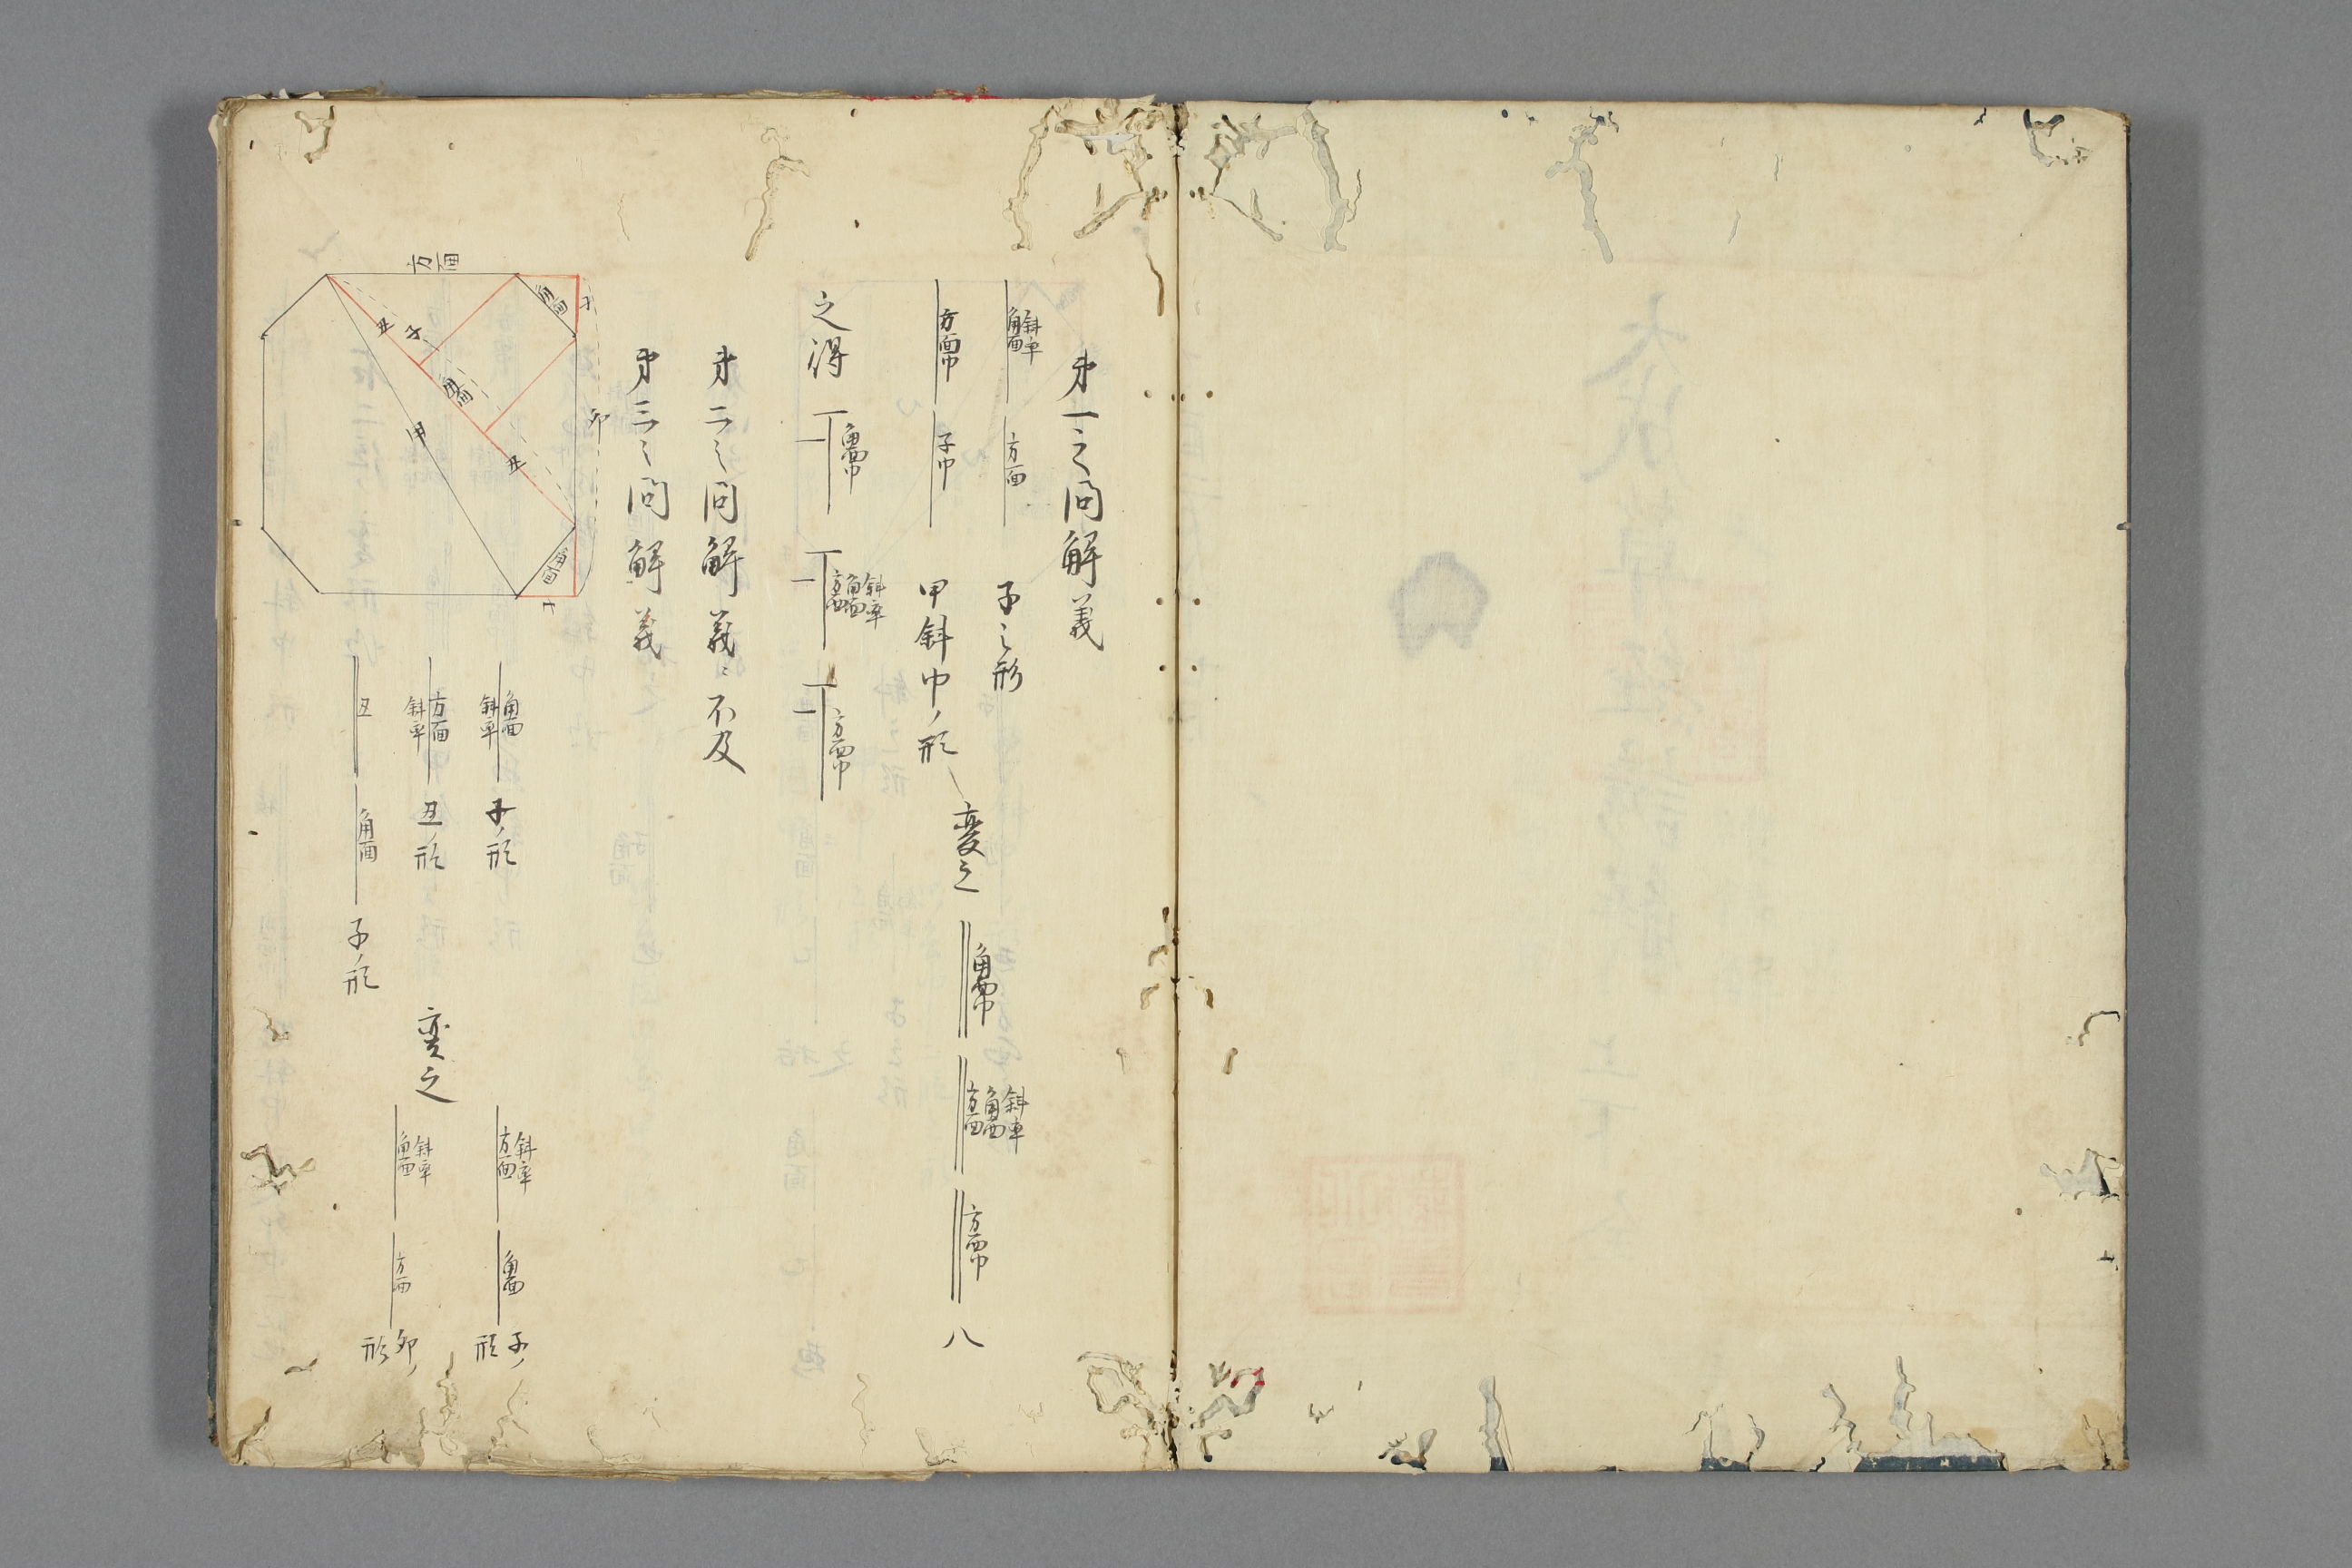 第一之問解義
斜率角面 方面 子之形
方面巾 子巾 甲斜巾ノ形
変之 角面巾 斜率角面方面 方面巾 八
之得 角面巾 斜率角面方面 方面巾
第二之問解義ニ不及
第三之問解義
方面
角面
子
丑
子
角面
甲
丑
卯
角面
子
角面斜率 子ノ形
方面斜率 丑ノ形
丑 角面 子ノ形
変之
斜率方面 角面 子ノ形
斜率角面 方面 卯ノ形